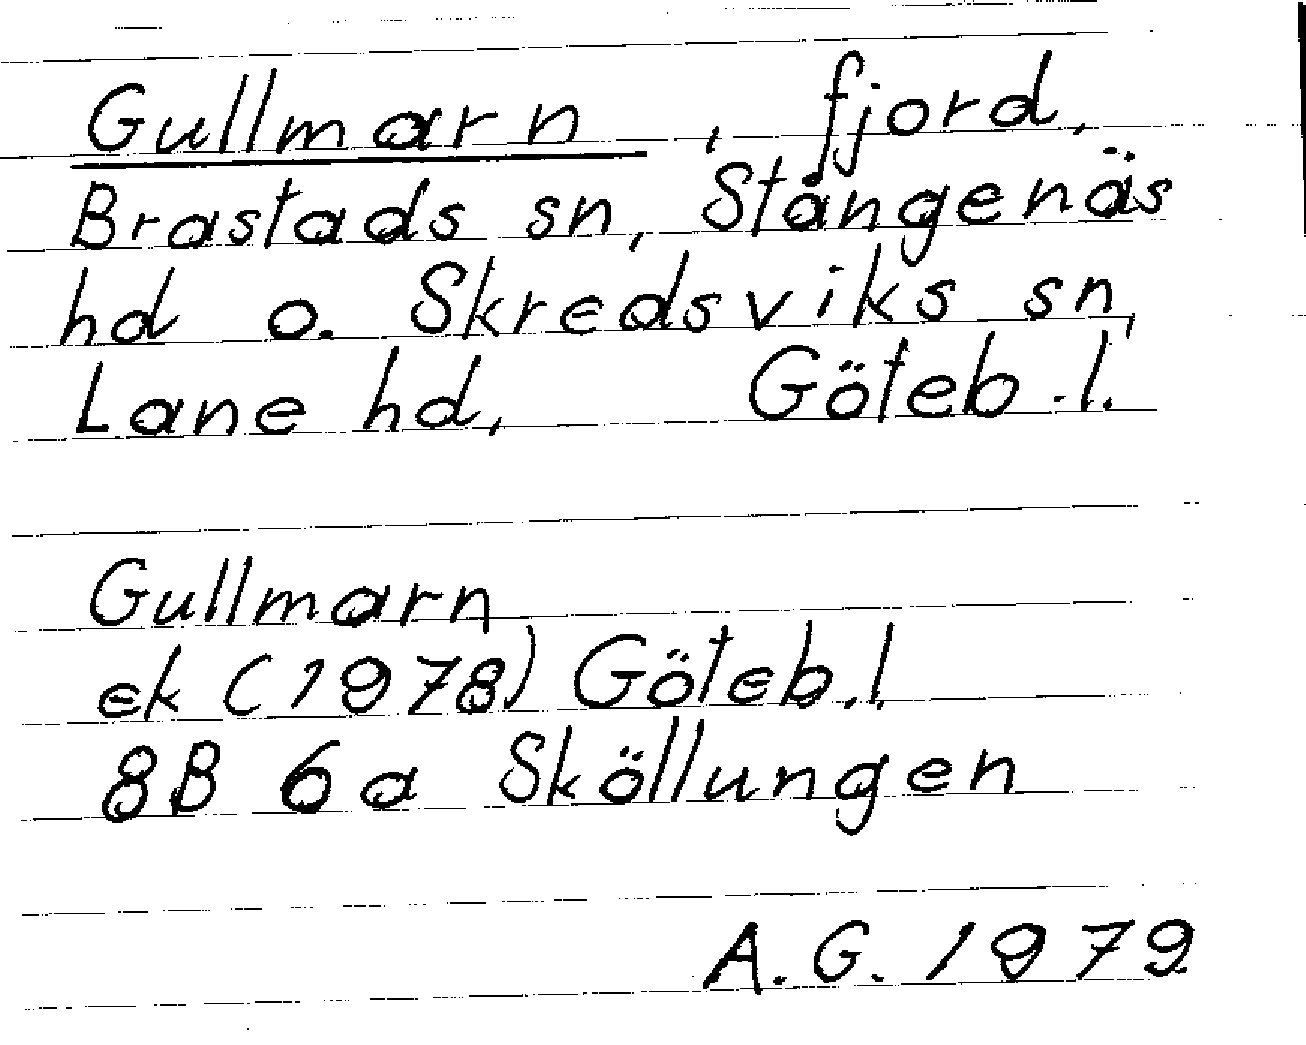 Gullmarn, fjord,
Brastads sn, Stångenäs
hd o. Skredsviks sn,
Lane hd, Göteb.l.
Gullmarn
ek (1978) Göteb.l.
8B 6a Sköllungen
A.G. 1979